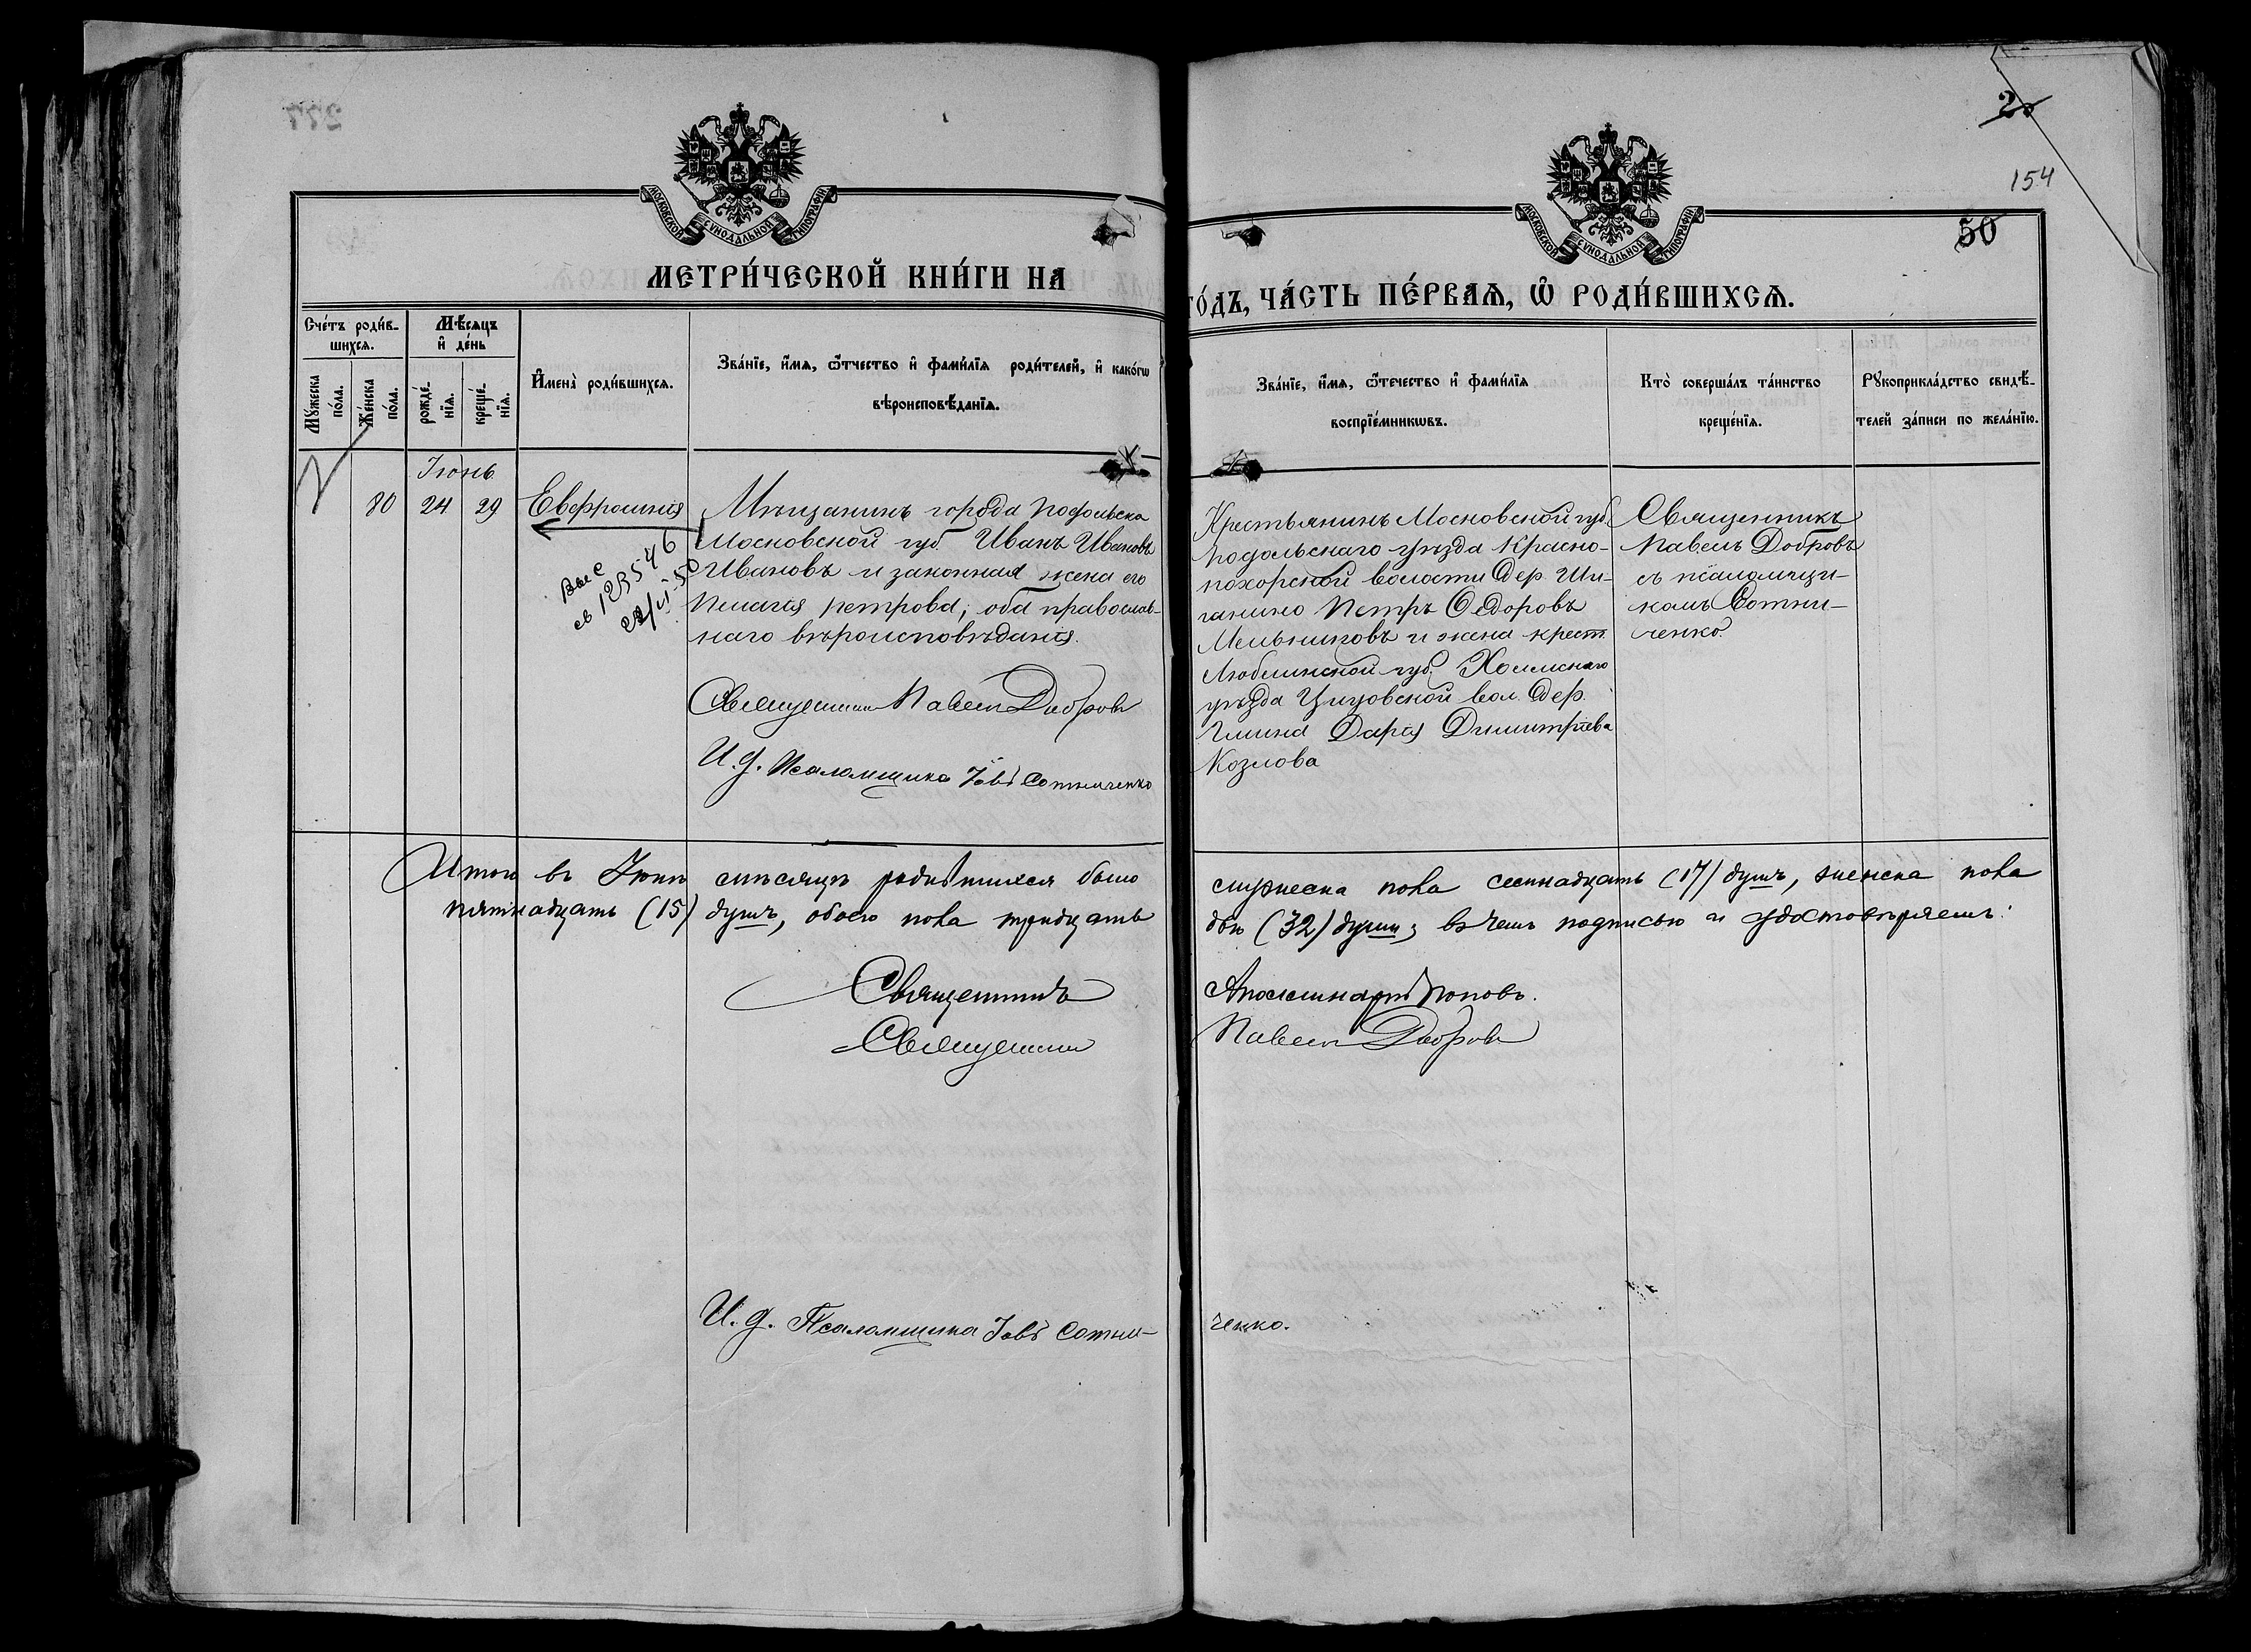 277
20
154
50
МОСКОВСКОЙ СѴНОДАЛЬНОЙ ТИПОГРАФІИ
МОСКОВСКОЙ СѴНОДАЛЬНОЙ ТИПОГРАФІИ
МЕТРИ́ЧЕСКОЙ КНИ́ГИ НА
ГО́ДЪ, ЧА́СТЬ ПЕ́РВАѦ, Ѡ҆ РОДИ́ВШИХСѦ.
Сче́тъ роди́в-
шихсѧ.
Мѣ́сѧцъ
и҆ де́нь
Мꙋ́жеска
по́ла.
Же́нска
по́ла.
рожде́-
нїѧ.
креще́-
нїѧ.
И҆мена̀ роди́вшихсѧ.
Зва́нїе, и҆́мѧ, ѻ҆́тчество и҆ фами́лїѧ роди́телей, и҆ како́гѡ
вѣроисповѣ́данїѧ.
Зва́нїе, и҆́мѧ, ѻ҆́течество и҆ фами́лїѧ
воспрїе́мникѡвъ.
Кто̀ соверша́лъ та́инство
креще́нїѧ.
Рꙋкоприкла́дство свидѣ́-
телей за́писи по жела́нїю.
Іюнь
80 24 29 Евфросинія
Мѣщанинъ города Подольска
Московской губ. Иванъ Ивановъ
Ивановъ и законная жена его
Пелагія Петрова, оба православ-
наго вѣроисповѣданія.
Священникъ Павелъ Добровъ
И. д. Псаломщика Іовъ Сотниченко
св 123546
22/VI-50
Крестьянинъ Московской губ.
Подольскаго уѣзда Красно-
пахорской волости дер. Ши-
ганино Петръ Ѳедоровъ
Мельниковъ и жена крест.
Люблинской губ. Холмскаго
уѣзда Цицовской вол. дер.
Глина Дарія Димитріева
Козлова
Священникъ
Павелъ Добровъ
съ псаломщи-
комъ Сотни-
ченко.
Итого въ Іюнѣ мѣсяцѣ родившихся было мужеска пола семнадцать (17) душъ, женска пола
пятнадцать (15) душъ, обоего пола тридцать двѣ (32) души; въ чемъ подписью и удостовѣряемъ:
Священникъ Аполлинарій Поповъ.
Священникъ Павелъ Добровъ
И. д. Псаломщика Іовъ Сотни-
ченко.